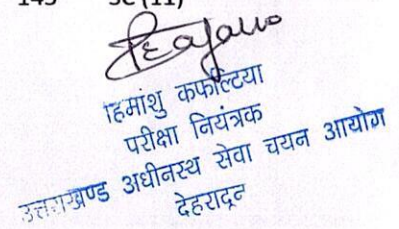 SC (11)
हिमांशु कफल्टिया
परीक्षा नियंत्रक
उत्तराखण्ड अधीनस्थ सेवा चयन आयोग
देहरादून